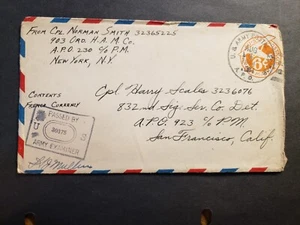 From Cpl. Norman Smith 32365225
903 Ord. H.A.M. Co.
A.P.O. 230 c/o P.M.
New York, N.Y.
U.S. ARMY
A.P.O.
6¢
Contents
French Currency
Cpl Harry Scales 3236076
832nd Sig. Serv. Co. Det.
A.P.O. 923 c/o P.M.
San Francisco, Calif.
PASSED BY
U S
ARMY EXAMINER